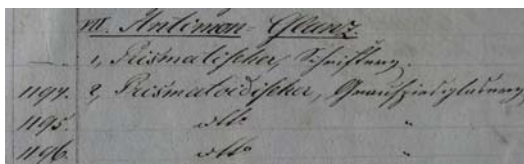 VII. Antimon-Glanz.
1, Prismatischer, Schrifterz.
1194. 2, Prismatoidischer, Grauspiesglaserz
1195. dtto "
1196. dtto "